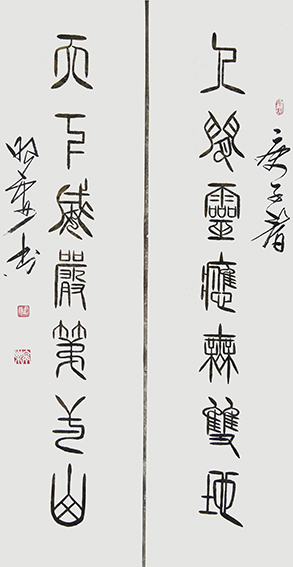 庚子春
人間靈應無雙地
天下威嚴第弌山
書